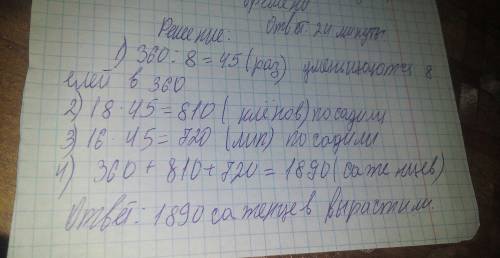 времени
Решение: Ответ: 24 минуты
1) 360:8=45(раз) уменьшаются 8
елей в 360
2) 18·45=810( клёнов) посадили
3) 16·45=720 (лип) посадили
4) 360+810+720=1890(саженцев)
Ответ: 1890 саженцев вырастили.